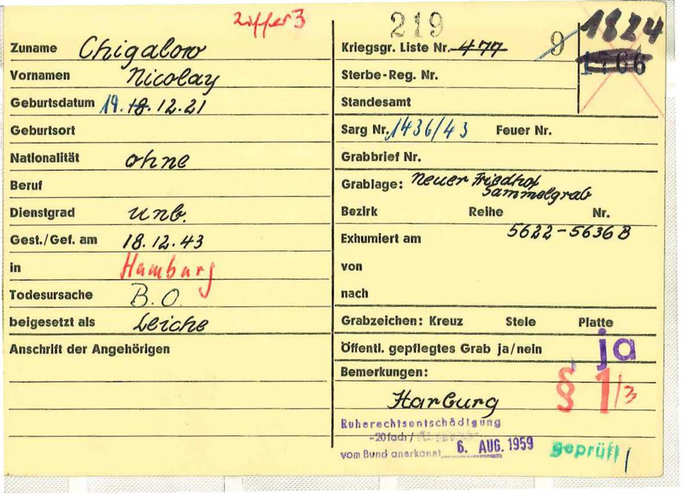 Ziffer 3
Zuname Chigalow
Vornamen Nicolay
Geburtsdatum 19. 18. 12. 21
Geburtsort
Nationalität ohne
Beruf
Dienstgrad unb.
Gest./Gef. am 18. 12. 43
in Hamburg
Todesursache B. O.
beigesetzt als Leiche
Anschrift der Angehörigen
219
Kriegsgr. Liste Nr. 477 9
1824
1766
Sterbe-Reg. Nr.
Standesamt
Sarg Nr. 1436/43 Feuer Nr.
Grabbrief Nr.
Grablage: Neuer Friedhof
Sammelgrab
Bezirk Reihe Nr.
5622-5636 B
Exhumiert am
von
nach
Grabzeichen: Kreuz Stele Platte
Öffentl. gepflegtes Grab ja/nein ja
Bemerkungen: § 1/3
Harburg
Ruherechtsentschädigung
-20fach /
vom Bund anerkannt 6. AUG. 1959 geprüft